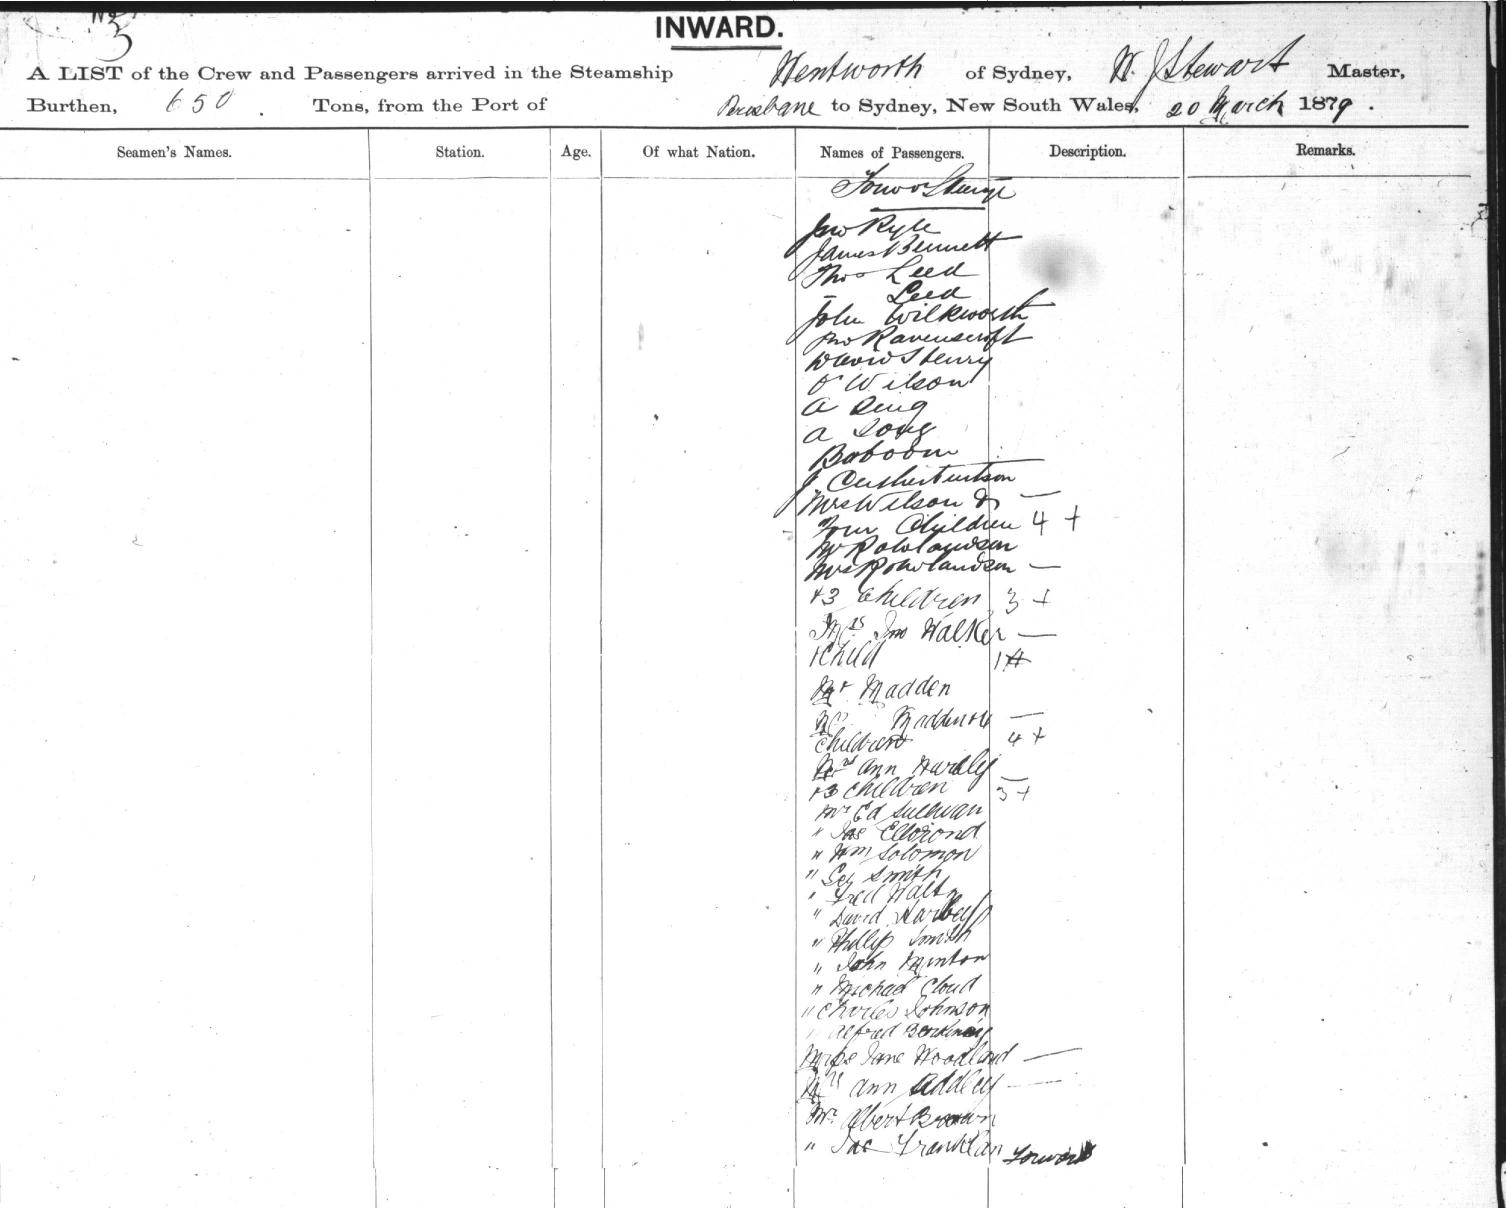 No 3
INWARD.
A LIST of the Crew and Passengers arrived in the Steamship Wentworth of Sydney, W. J Stewart Master,
Burthen, 650 . Tons, from the Port of Brisbane to Sydney, New South Wales, 20 March 1879 .
Seamen's Names. Station. Age. Of what Nation. Names of Passengers. Description. Remarks.
Jno Ryle
James Bennett
Thos Leed
– Leed
John Wilkworth
Jno Ravenscroft
David Henry
Wilson
A Sing
A Song
Baboom
J. Cuthbertson
Mrs Wilson & —
Four Children 4 +
Mr Rowlandson
Mrs Rowlandson —
+3 Children 3 +
Mrs Jno Walker —
+ Child 1 +
Mr Madden
Mrs Madden +4 —
Children 4 +
Mrs Ann Harley —
+3 Children 3 +
Mr Ed Sullivan
" Jas
" Wm Solomon
" Smith
" Fred
" David Harley
" Phillip Smith
" John Minton
" Michael Cloud
" Charles Johnson
" Alfred
Miss Jane Woodland —
Mrs Ann Addley —
Mr Albert Brown
" Jas Franklan Forward